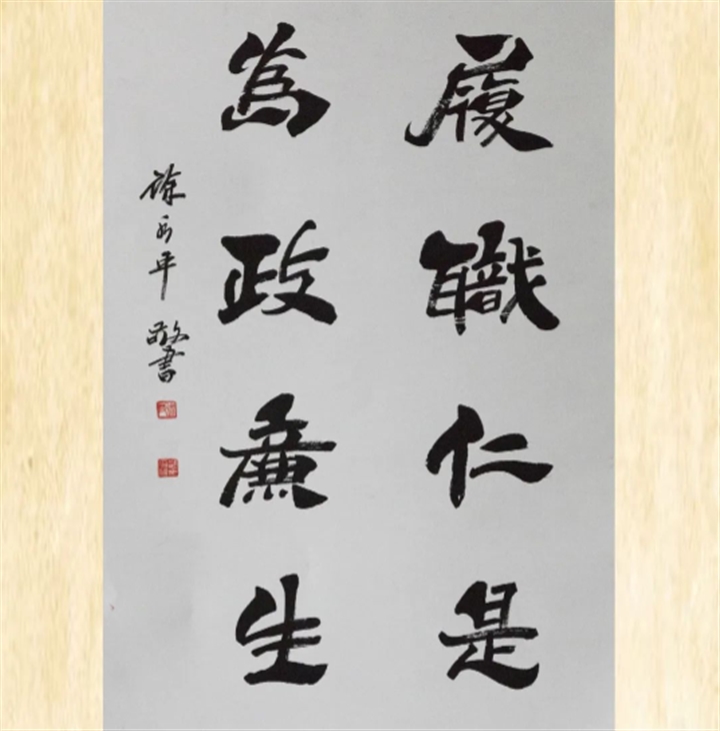 履職仁是
為政廉生
徐平敬書